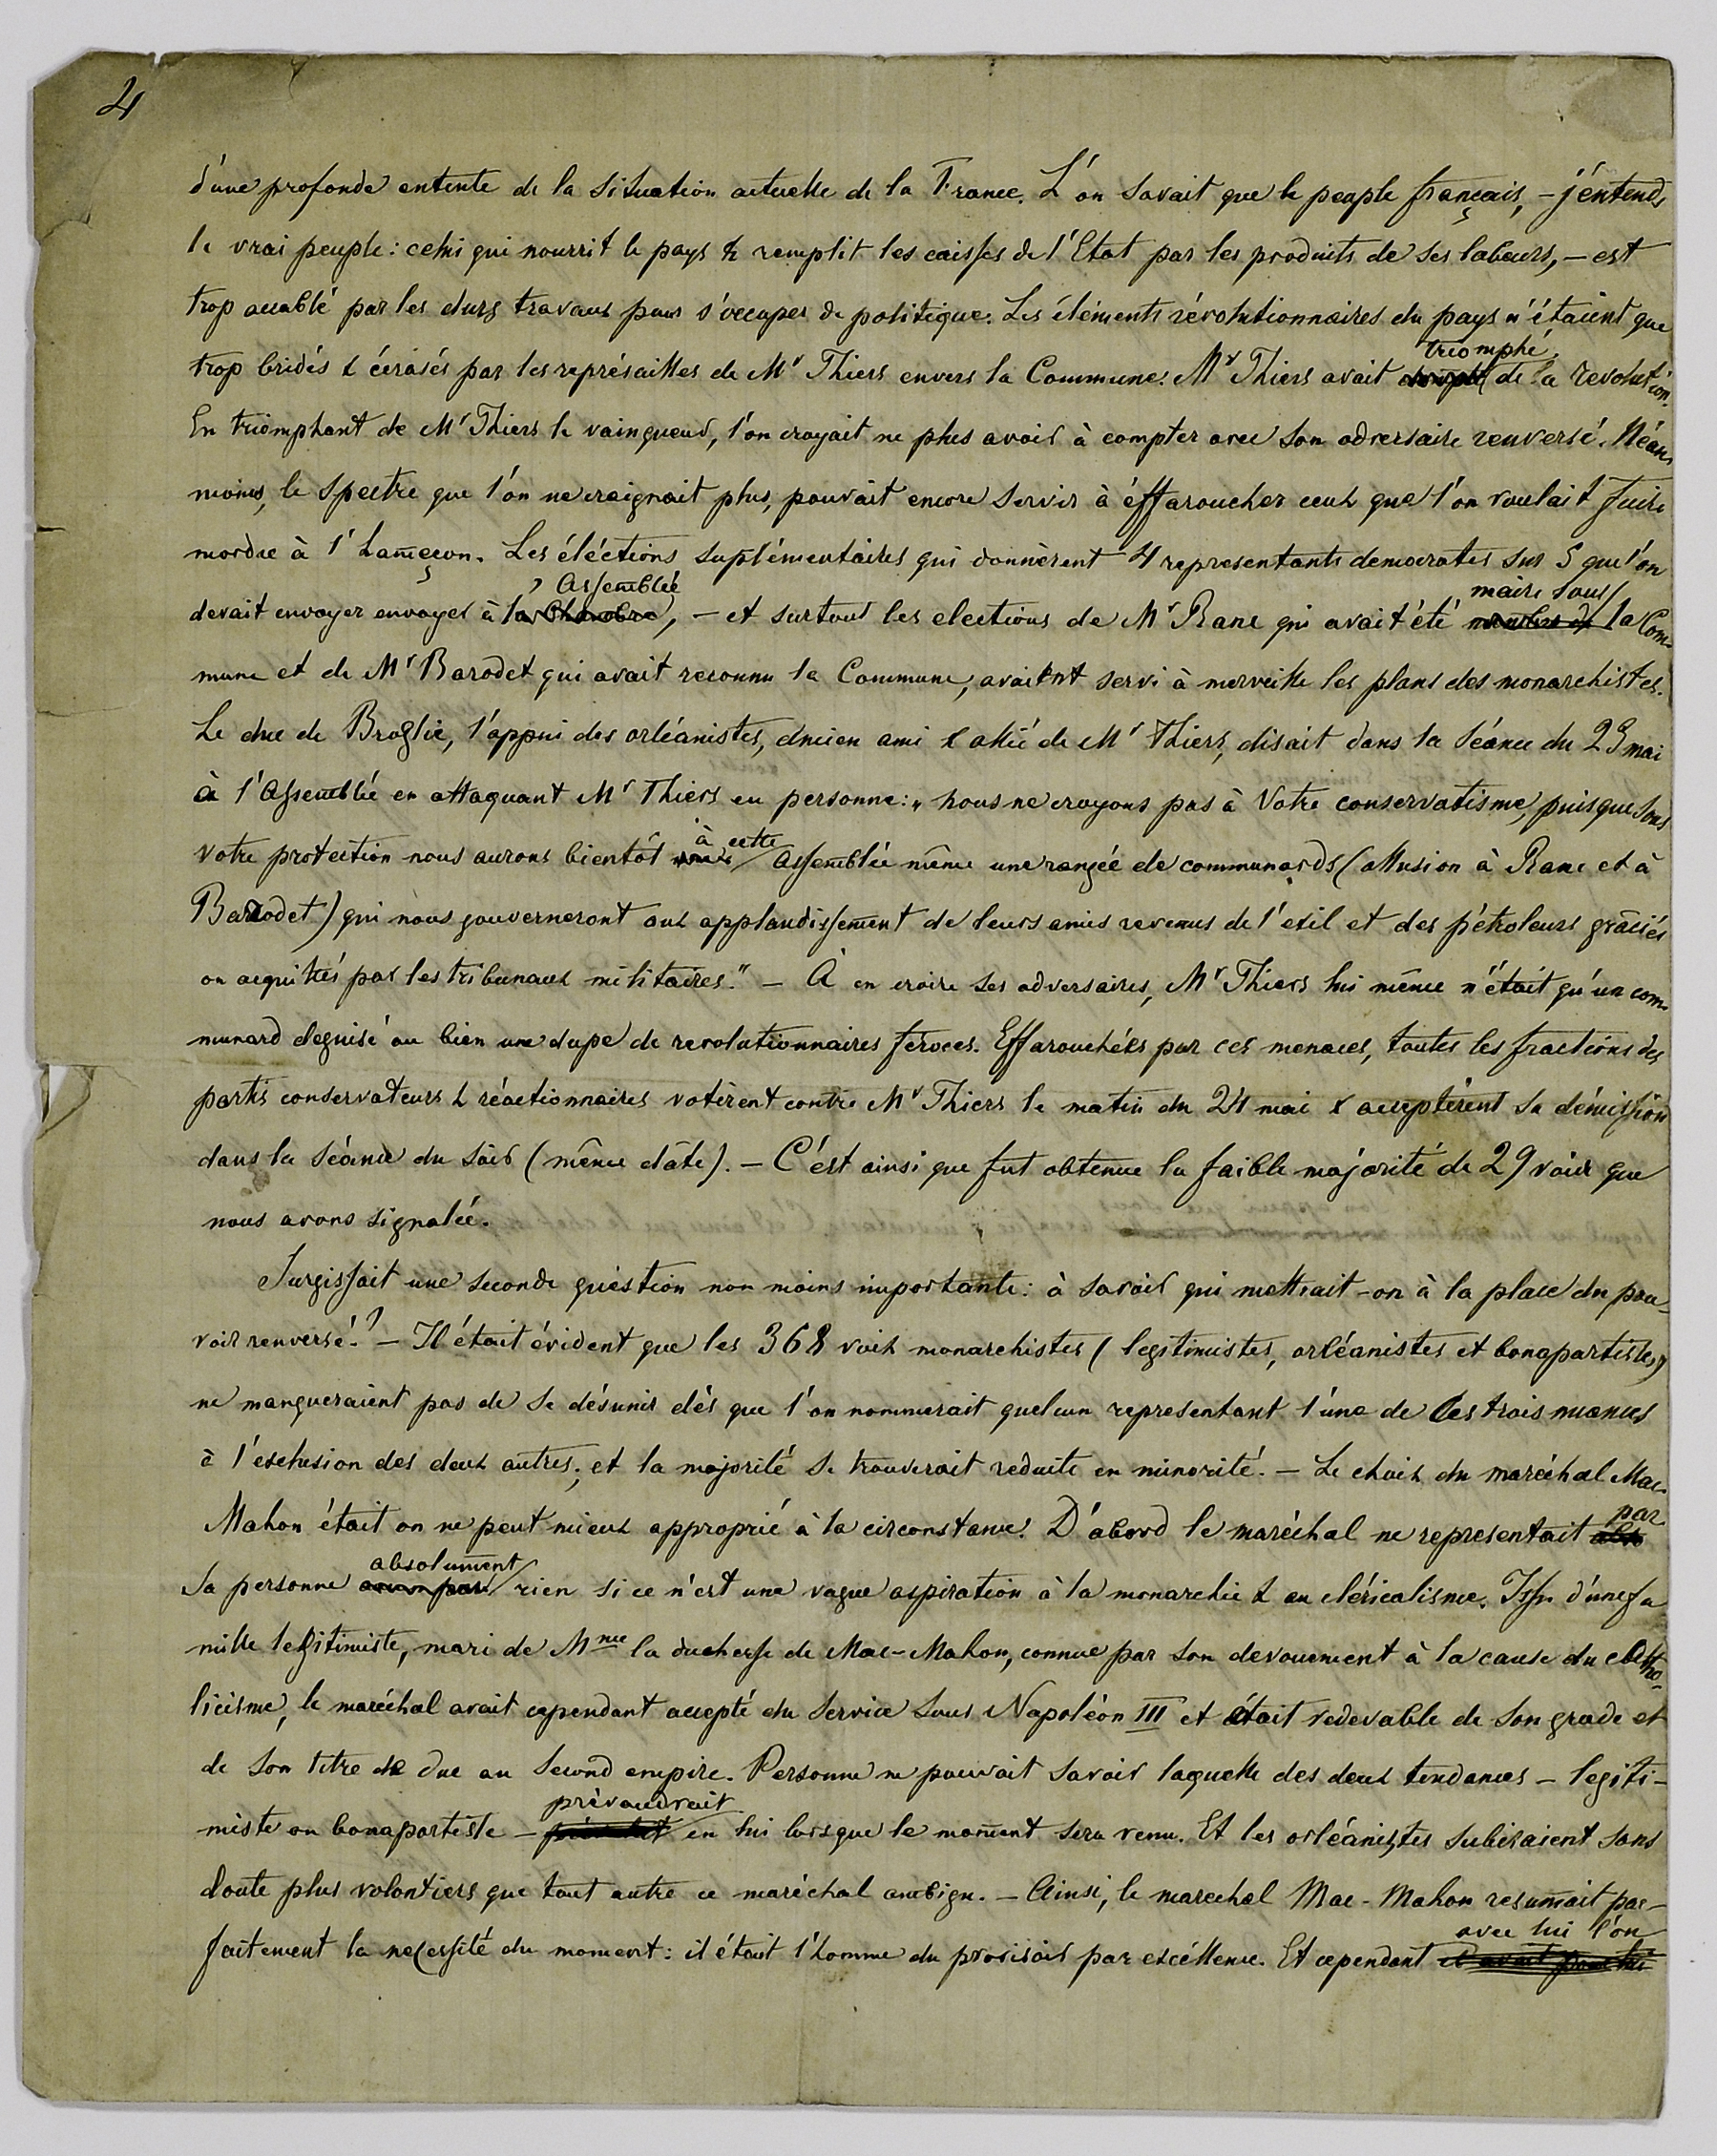 4
d'une profonde entente de la situation actuelle de la France. L'on savait que le peuple français, – j'entends
le vrai peuple: celui qui nourrit le pays & remplit les caisses de l'Etat par les produits de ses labeurs, – est
trop accablé par les durs travaux pour s'occuper de politique. Les éléments révolutionnaires du pays n'étaient que
trop bridés & écrasés par les représailles de Mr Thiers envers la Commune. Mr Thiers avait triomphé de la revolution.
En triomphant de Mr Thiers le vainqueur, l'on croyait ne plus avoir à compter avec son adversaire renversé. Néan-
moins, le spectre que l'on ne craignait plus, pouvait encore servir à éffaroucher ceux que l'on voulait faire
mordre à l'hameçon. Les éléctions suplémentaires qui donnèrent 4 representants democrates sur 5 que l'on
devait envoyer envoyer à l'Assemblée, – et surtout les elections de Mr Ranc qui avait été maire sous la Com-
mune et de Mr Barodet qui avait reconnu la Commune, avaient servi à merveille les plans des monarchistes.
Le duc de Broglie, l'appui des orléanistes, ancien ami & allié de Mr Thiers, disait dans la séance du 23 mai
à l'Assemblée en attaquant Mr Thiers en personne: „nous ne croyons pas à Votre conservatisme, puisque sous
votre protection nous aurons bientôt à cette assemblée même une rangée de communards (allusion à Ranc et à
Barodet) qui nous gouverneront aux applaudissement de leurs amis revenus de l'exil et des pétroleurs graciés
ou acquittés par les tribunaux militaires." – À en croire ses adversaires, Mr Thiers lui même n'était qu'un com-
munard deguisé ou bien une dupe de revolutionnaires féroces. Effarouchées par ces menaces, toutes les fractions des
partis conservateurs & réactionnaires votèrent contre Mr Thiers le matin du 24 mai & acceptèrent sa démission
dans la séance du soir (même date). – C'est ainsi que fut obtenue la faible majorité de 29 voix que
nous avons signalée.
Surgissait une seconde question non moins importante: à savoir qui mettrait-on à la place du pou-
voir renversé? – Il était évident que les 368 voix monarchistes (legitimistes, orléanistes et bonapartistes)
ne manqueraient pas de se désunir dès que l'on nommerait quelcun representant l'une de ces trois nuances
à l'exclusion des deux autres; et la majorité se trouverait reduite en minorité. – Le choix du maréchal Mac-
Mahon était on ne peut mieux approprié à la circonstance. D'abord le maréchal ne representait par
sa personne absolument rien si ce n'est une vague aspiration à la monarchie & au cléricalisme. Issu d'une fa
mille legitimiste, mari de Mme la duchesse de Mac-Mahon, connue par son devouement à la cause du catho-
licisme, le maréchal avait cependant accepté du service sous Napoléon III et était redevable de son grade et
de son titre de duc au second empire. Personne ne pouvait savoir laquelle des deux tendances – legiti-
miste ou bonapartiste – prévaudrait en lui lorsque le moment sera venu. Et les orléanistes subiraient sans
doute plus volontiers que tout autre ce maréchal ambigu. – Ainsi, le marechal Mac-Mahon resumait par-
faitement la necessité du moment: il était l'homme du provisoir par excéllence. Et cependant avec lui l'on